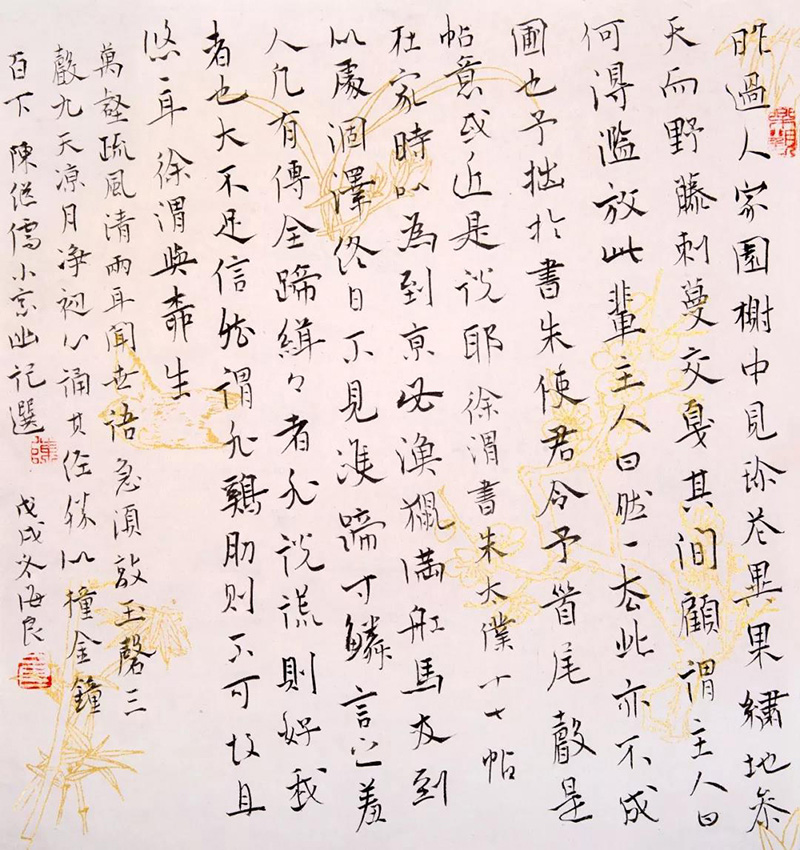 昨過人家園榭中見珍花異果繡地參
天而野藤刺蔓交戛其間顧謂主人曰
何得濫放此輩主人曰然一去此亦不成
圃也予拙於書朱使君令予首尾聲是
帖意或近是說耶 徐渭書朱太僕十七帖
在家時以為到京必漁獵滿船馬及到
似處涸澤終日不見隻蹄寸鱗言之羞
人凡有傳全蹄緝々者非說謊則好我
者也大不足信然謂非鷄肋則不可故且
悠々耳 徐渭與柳生
萬壑疏風清兩耳聞世語急須敲玉磬三
聲九天涼月淨初心誦其經勝似撞金鐘
百下 陳繼儒小窗幽記選 戊戌冬海良